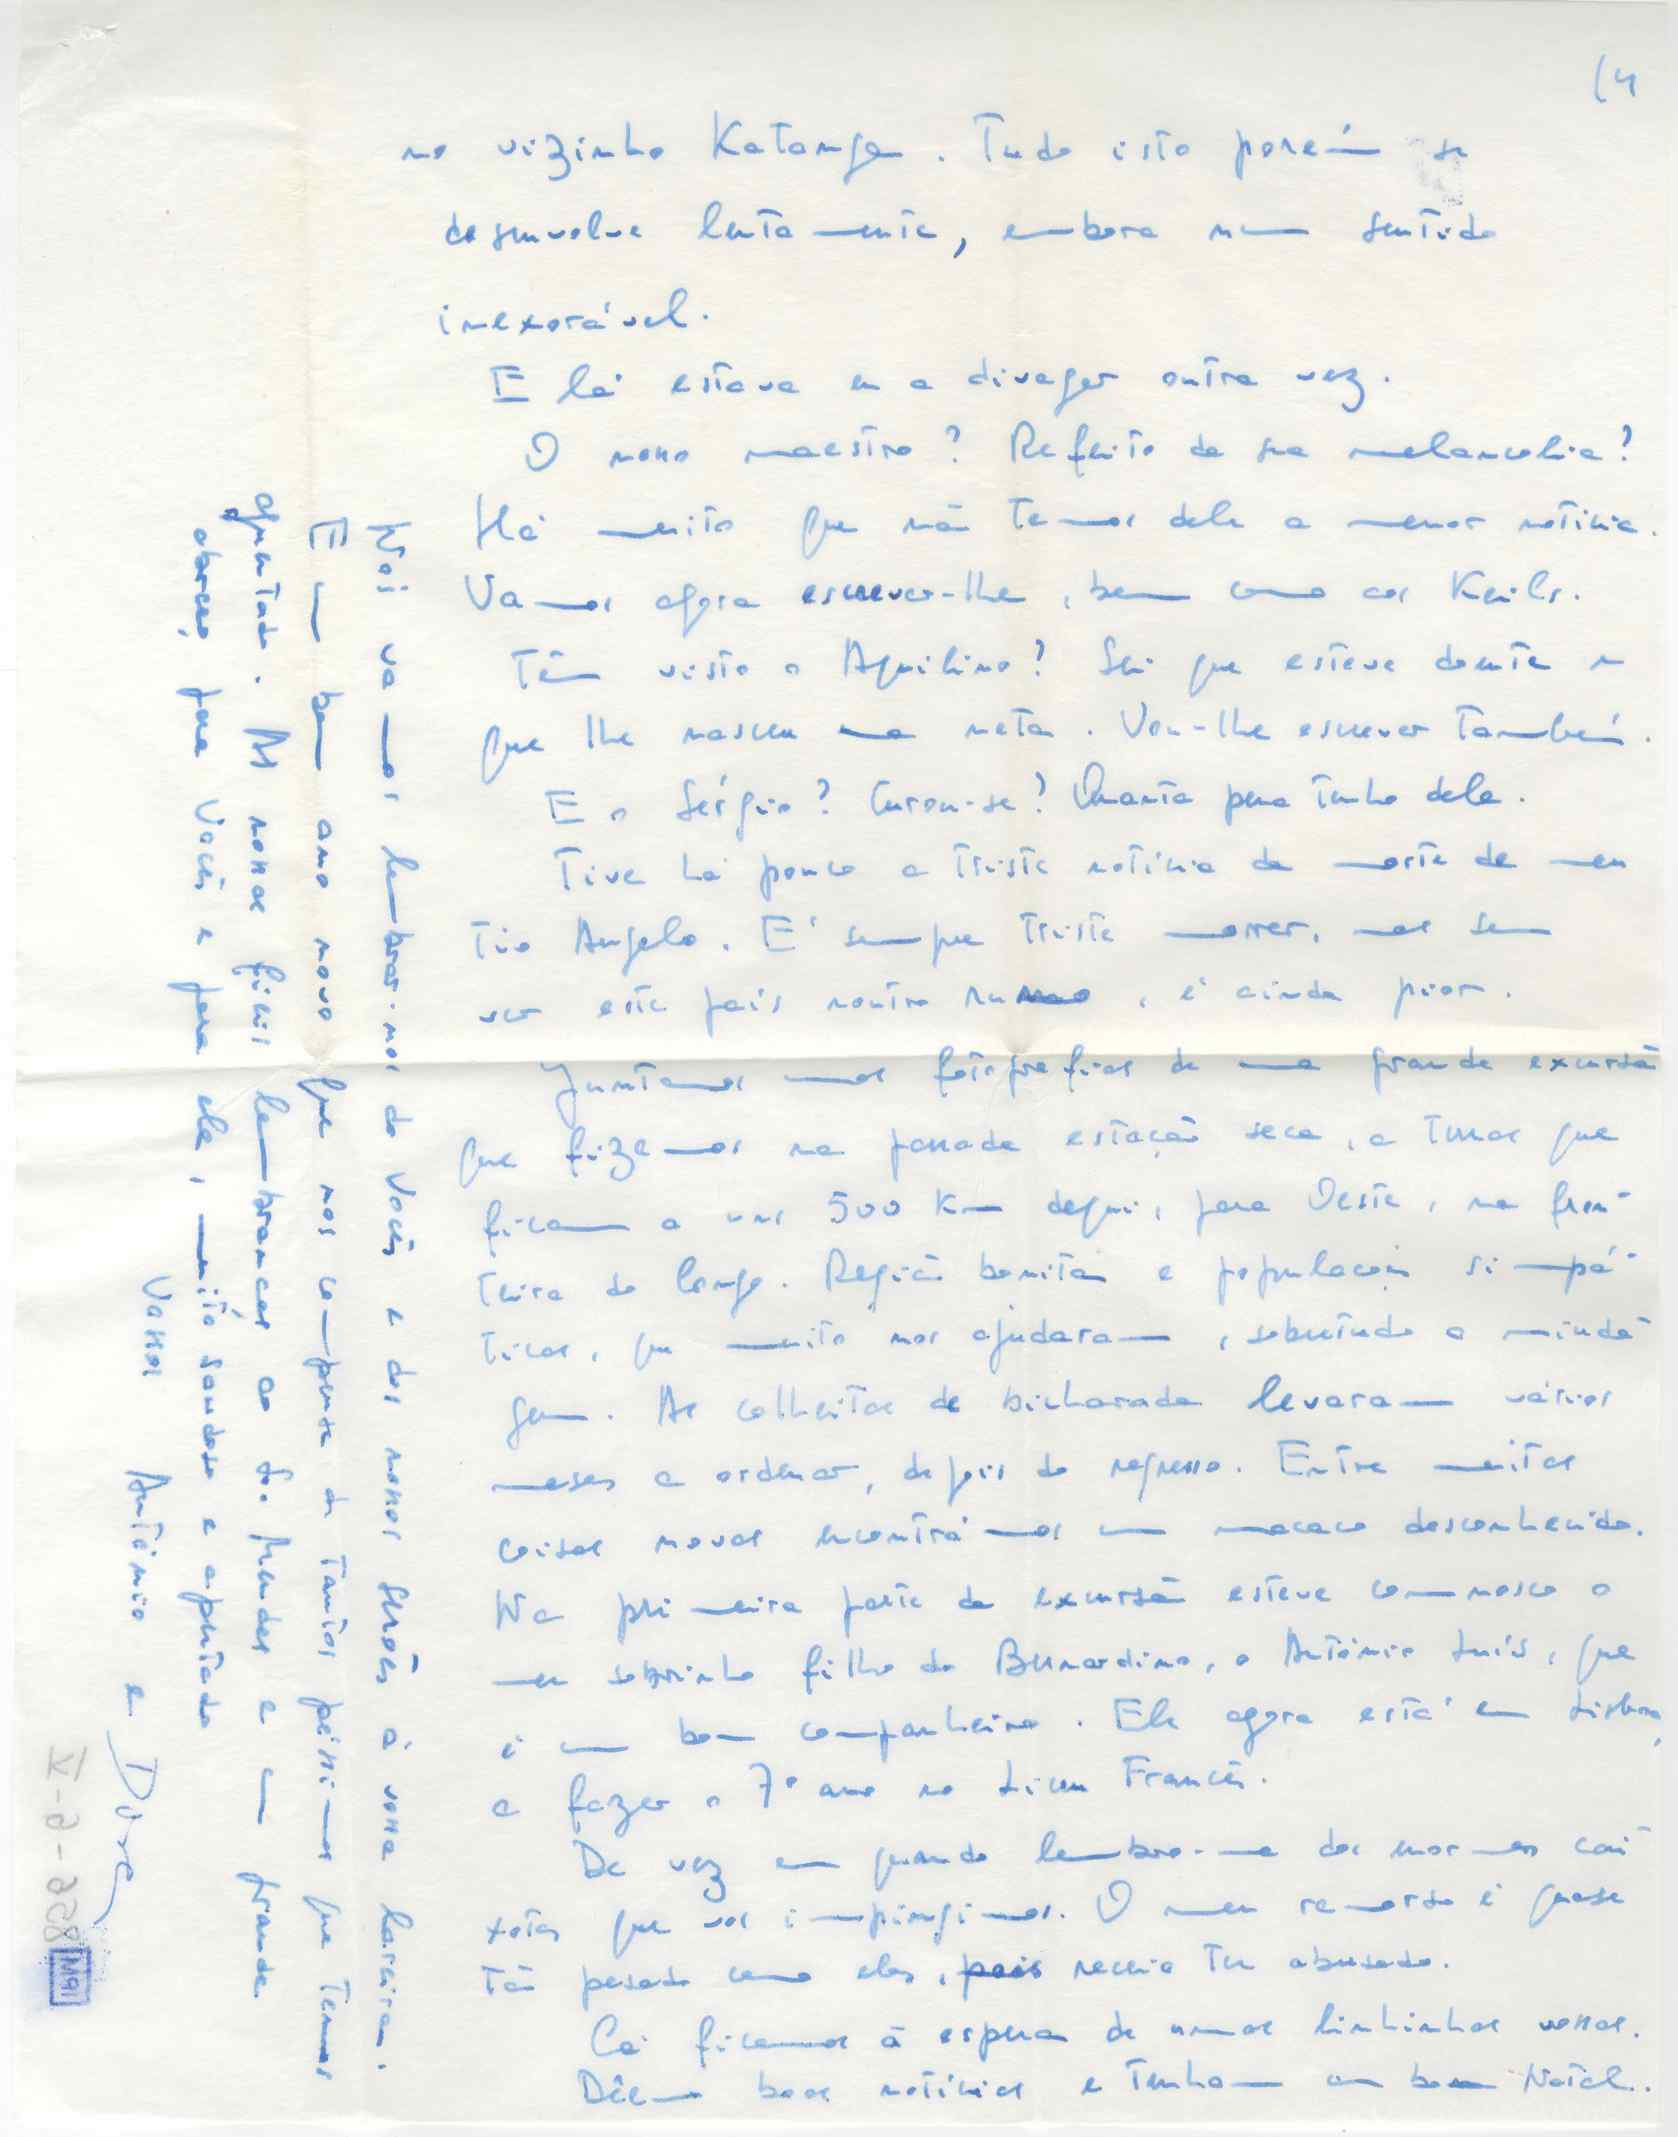 (4
no vizinho Katanga. Tudo isto porém se
desenvolve lentamente, embora num sentido
inexorável.
E lá estava eu a divagar outra vez.
O nosso maestro? Refeito da sua melancolia?
Há muito que não temos dele a menor notícia.
Vamos agora escrever-lhe, bem como aos Keils.
Têm visto o Aquilino? Sei que esteve doente e
que lhe nasceu uma neta. Vou-lhe escrever também.
E o Sérgio? Curou-se? Quanta pena tenho dele.
Tive há pouco a triste notícia da morte de meu
tio Angelo. É sempre triste morrer, mas sem
ver este país noutro rumo, é ainda pior.
Juntamos umas fotografias de uma grande excursão
que fizemos na passada estação seca, a terras que
ficam a uns 500 Km daqui, para Oeste, na fron-
teira do Congo. Região bonita e populações simpá-
ticas, que muito nos ajudaram, sobretudo a miuda-
gem. As colheitas de bicharada levaram vários
meses a ordenar, depois do regresso. Entre muitas
coisas novas encontrámos um macaco desconhecido.
Na primeira parte da excursão esteve connosco o
meu sobrinho filho do Bernardino, o António Luís, que
é um bom companheiro. Ele agora está em Lisboa,
a fazer o 7º ano no Liceu Francês.
De vez em quando lembro-me dos enormes cai-
xotes que vos impingimos. O meu remorso é quase
tão pesado como eles, pois receio ter abusado.
Cá ficamos à espera de umas linhinhas vossas.
Dêem boas notícias e tenham um bom Natal.
Nós vamos lembrar-nos de Vocês e dos nossos serões à vossa lareira.
E um bom ano novo que nos compense de tantos péssimos que temos
aguentado. As nossas fiéis lembranças ao Sr. Mendes e um grande
abraço para Vocês e para ela, muito saudoso e apertado
Vossos António e Dora
V-9-958
IPM